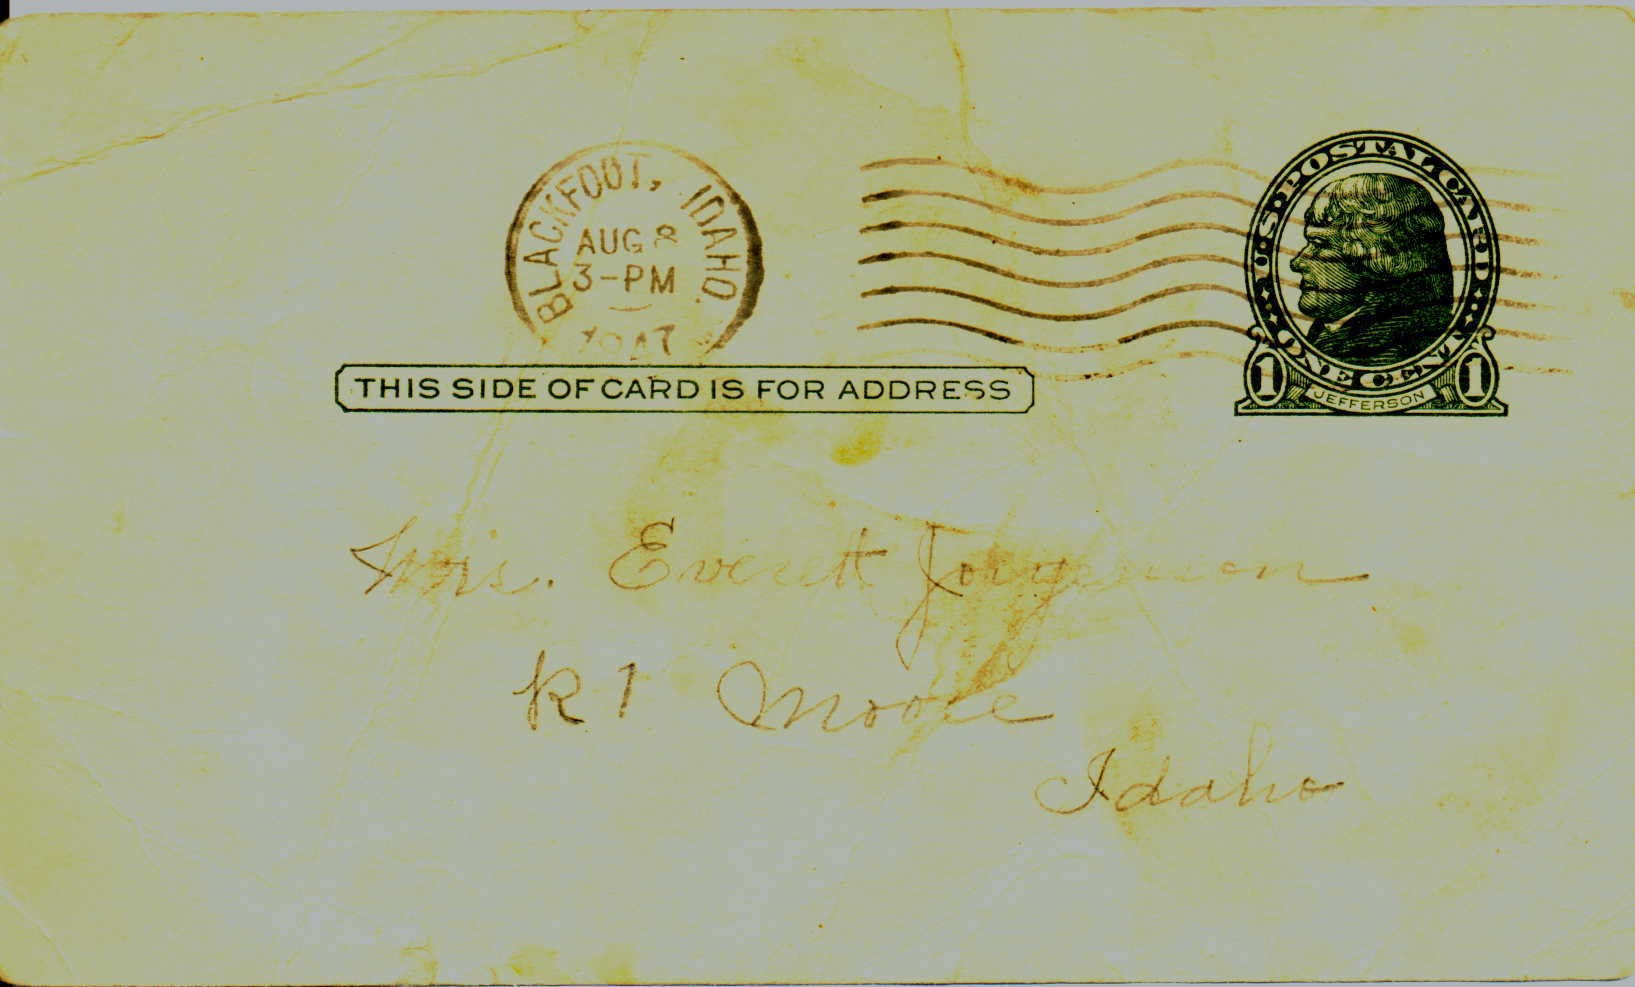 BLACKFOOT, IDAHO.
AUG 8
3-PM
1947
U·S·POSTAL CARD
ONE CENT
1 JEFFERSON 1
THIS SIDE OF CARD IS FOR ADDRESS
Mrs. Everett Jorgenson
R 1 Moore
Idaho